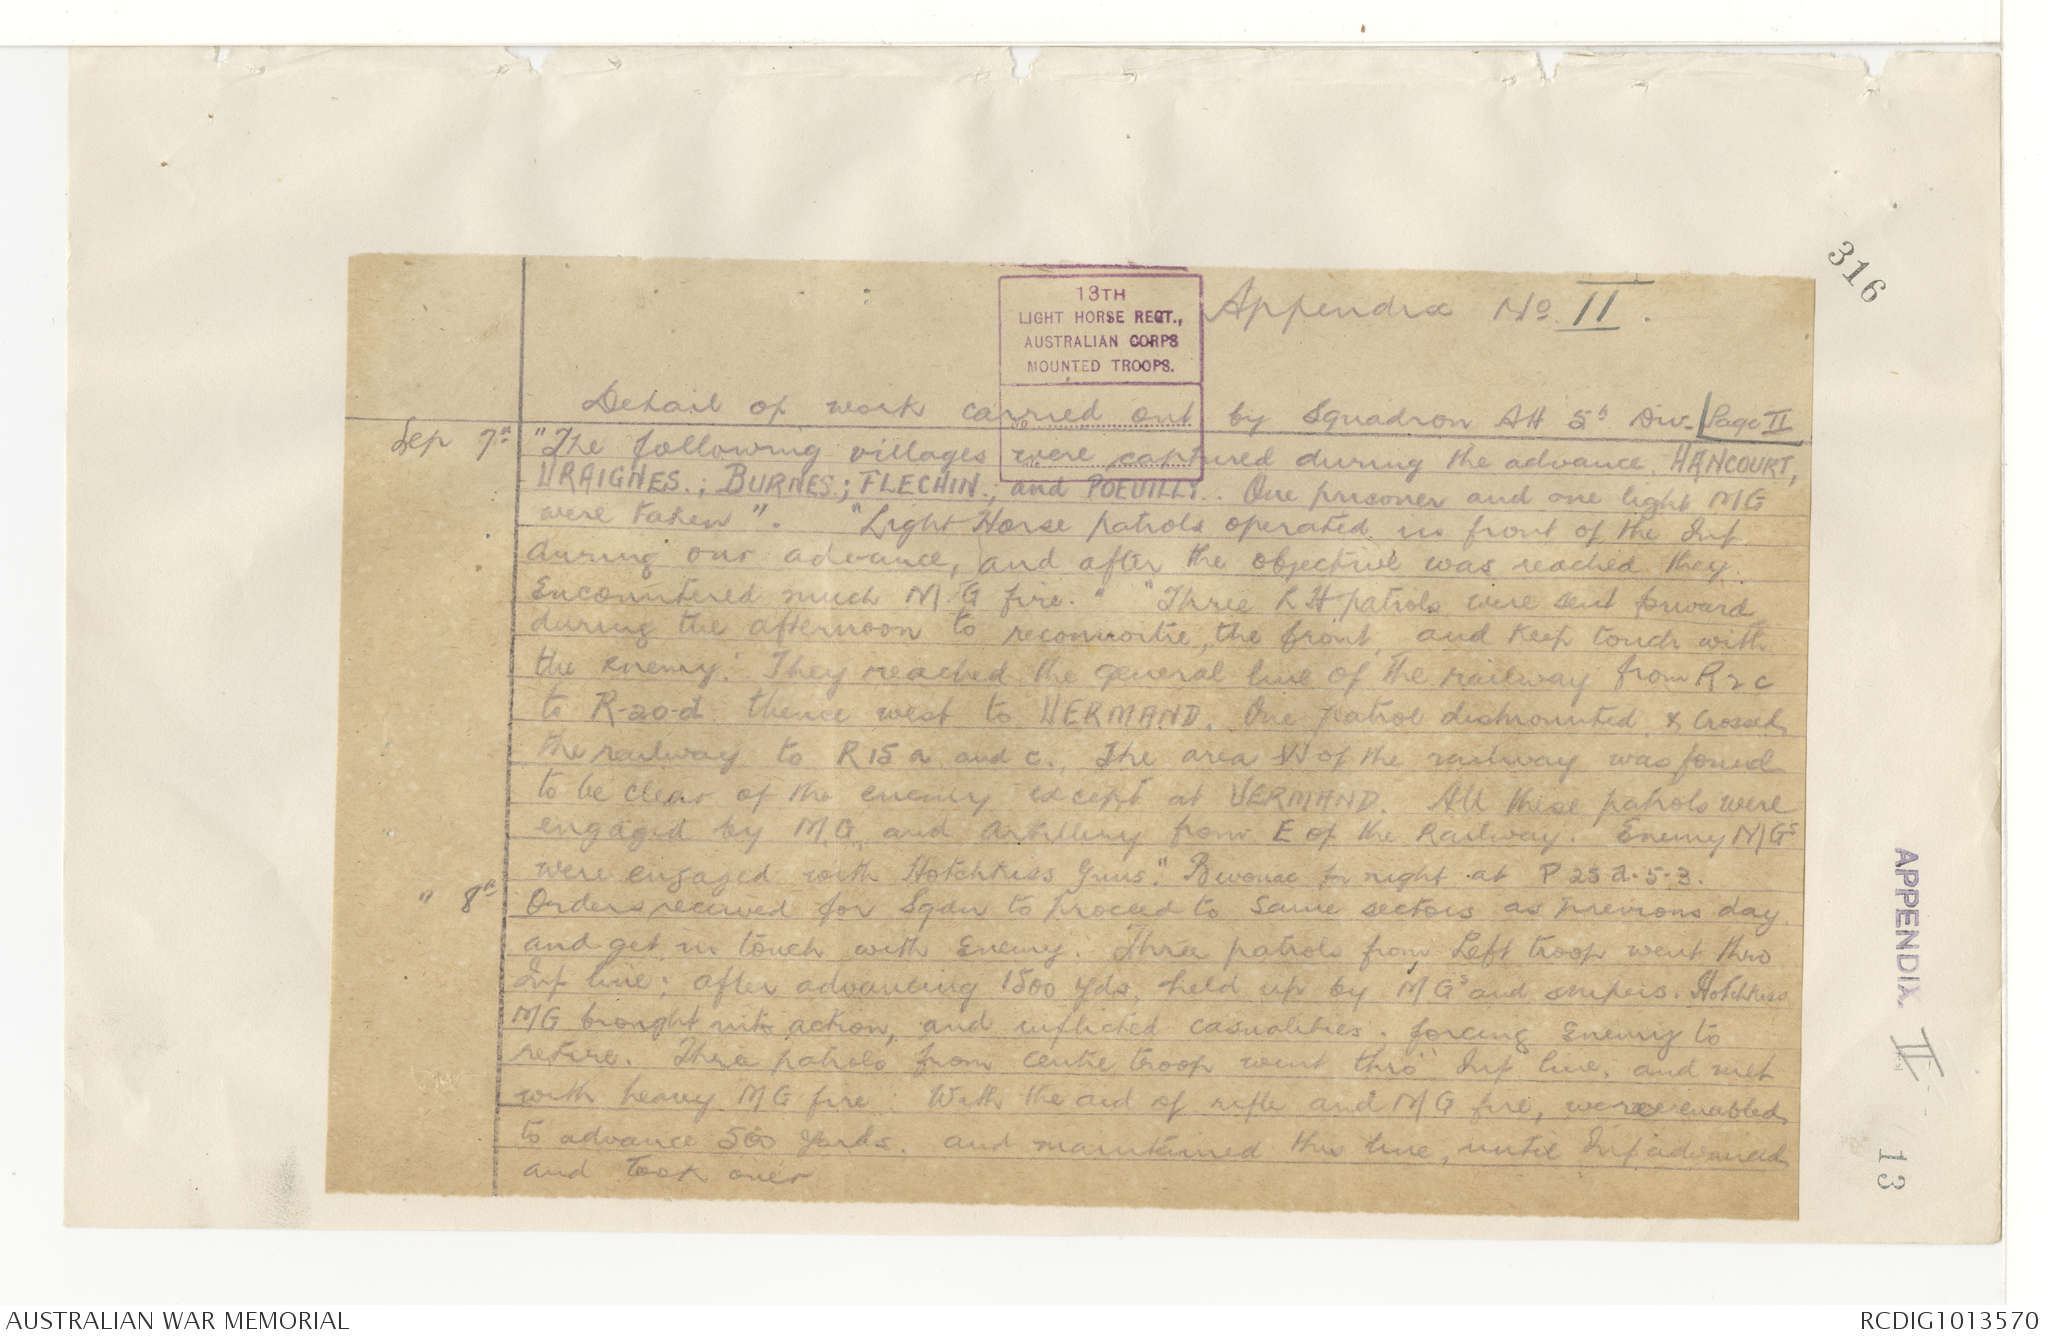 316
13TH
LIGHT HORSE REGT.,
AUSTRALIAN CORPS
MOUNTED TROOPS.
Appendix No II.
Detail of work carried out by Squadron Att 5th Div. Page II
Sep 7th "The following villages were captured during the advance. HANCOURT,
VRAIGNES.; BURNES.; FLECHIN.; and POEUILLY.. One prisoner and one light MG
were taken". "Light Horse patrols operated in front of the Inf.
during our advance, and after the objective was reached they
Encountered much M.G fire." "Three LH patrols were sent forward
during the afternoon to reconnoitre, the front, and keep touch with
the Enemy." They reached the general line of the railway from R 2 c
to R-20-d thence west to VERMAND. One patrol dismounted & crossed
the railway to R 15 a and c. The area W of the railway was found
to be clear of the enemy except at VERMAND. All these patrols were
engaged by M.G. and Artillery from E of the Railway. Enemy MGs
were engaged with Hotchkiss Guns." Bivouac for night at P 25 d.5.3.
" 8th Orders received for Sqdn to proceed to same sectors as previous day
and get in touch with Enemy. Three patrols from Left troop went thro
Inf line; after advancing 1500 yds, held up by MGs and snipers. Hotchkiss
MG brought into action, and inflicted casualities. forcing Enemy to
retire. Three patrols from centre troop went thro' Inf line, and met
with heavy MG fire. With the aid of rifle and MG fire, were enabled
to advance 500 yards. and maintained this line, until Inf advanced
and took over
APPENDIX. II
13
AUSTRALIAN WAR MEMORIAL
RCDIG1013570